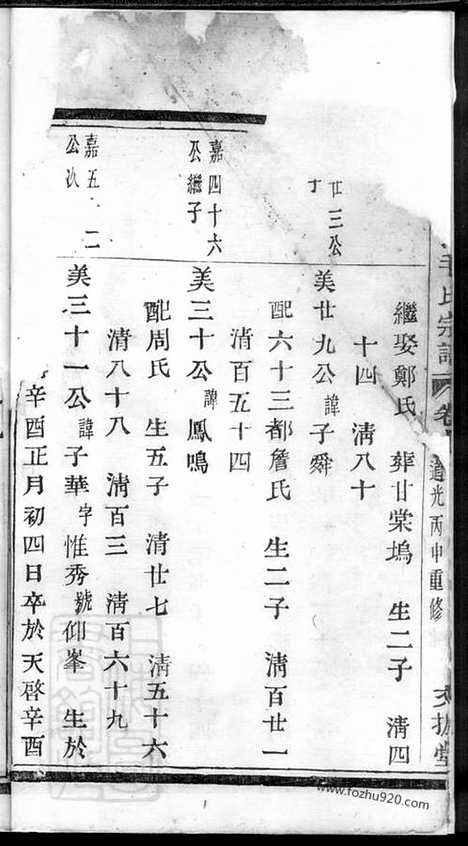 氏宗譜 卷 道光丙申重修
繼娶鄭氏 葬甘棠塢 生二子 清四
十四 清八十
廿三公
子
美廿九公諱子舜
配六十三都詹氏 生二子 清百廿一
清百五十四
嘉四十六
公繼子
美三十公諱鳳鳴
配周氏 生五子 清廿七 清五十六
清八十八 清百三 清百六十九
嘉五 二
公次
美三十一公諱子華字惟秀號仰峯 生於
辛酉正月初四日卒於天啓辛酉
www.fozhu920.com